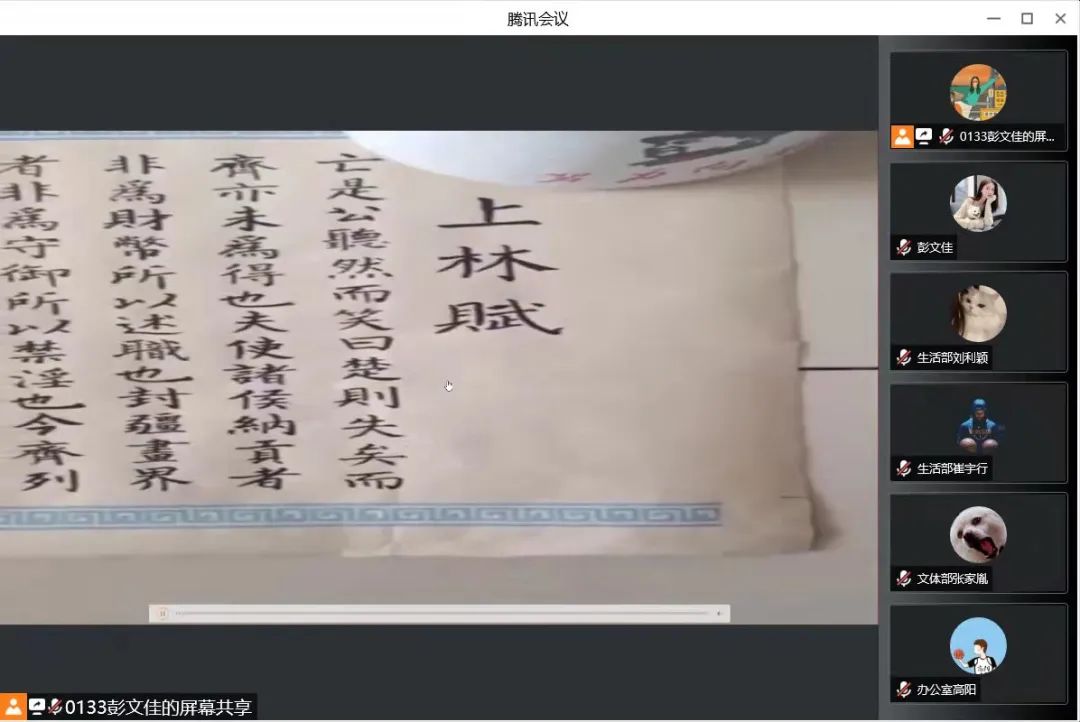 腾讯会议
上林賦
亡是公聽然而笑曰楚則失矣而
齊亦未爲得也夫使諸侯納貢者
非爲財幣所以述職也封疆畫界
者非爲守御所以禁淫也今齊列
0133彭文佳的屏...
彭文佳
生活部刘利颖
生活部崔宇行
文体部张家胤
办公室高阳
0133彭文佳的屏幕共享